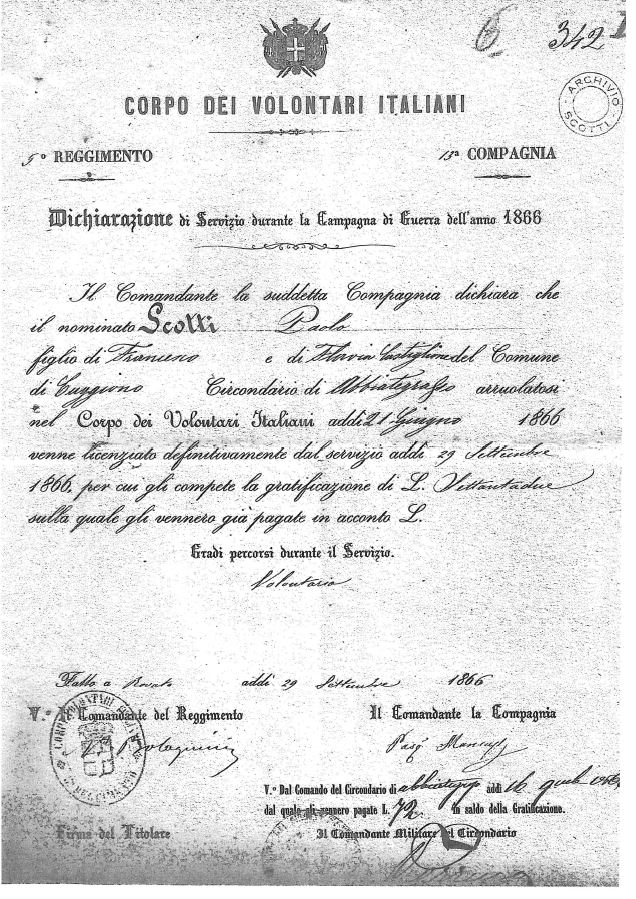 6 342
ARCHIVIO SCOTTI
CORPO DEI VOLONTARI ITALIANI
5º REGGIMENTO 13ª COMPAGNIA
Dichiarazione di Servizio durante la Campagna di Guerra dell'anno 1866
Il Comandante la suddetta Compagnia dichiara che
il nominato Scotti Paolo
figlio di Francesco e di Flavia Castiglione del Comune
di Cuggiono Circondario di Abbiategrasso arruolatosi
nel Corpo dei Volontari Italiani addì 21 Giugno 1866
venne licenziato definitivamente dal servizio addì 29 Settembre
1866, per cui gli compete la gratificazione di L. Settantadue
sulla quale gli vennero già pagate in acconto L.
Gradi percorsi durante il Servizio.
Volontario
Fatto a addì 29 Settembre 1866
V.º Il Comandante del Reggimento Il Comandante la Compagnia
V.º Dal Comando del Circondario di addì 16
dal quale gli vennero pagate L. 72 in saldo della Gratificazione.
Firma del Titolare Il Comandante Militare del Circondario